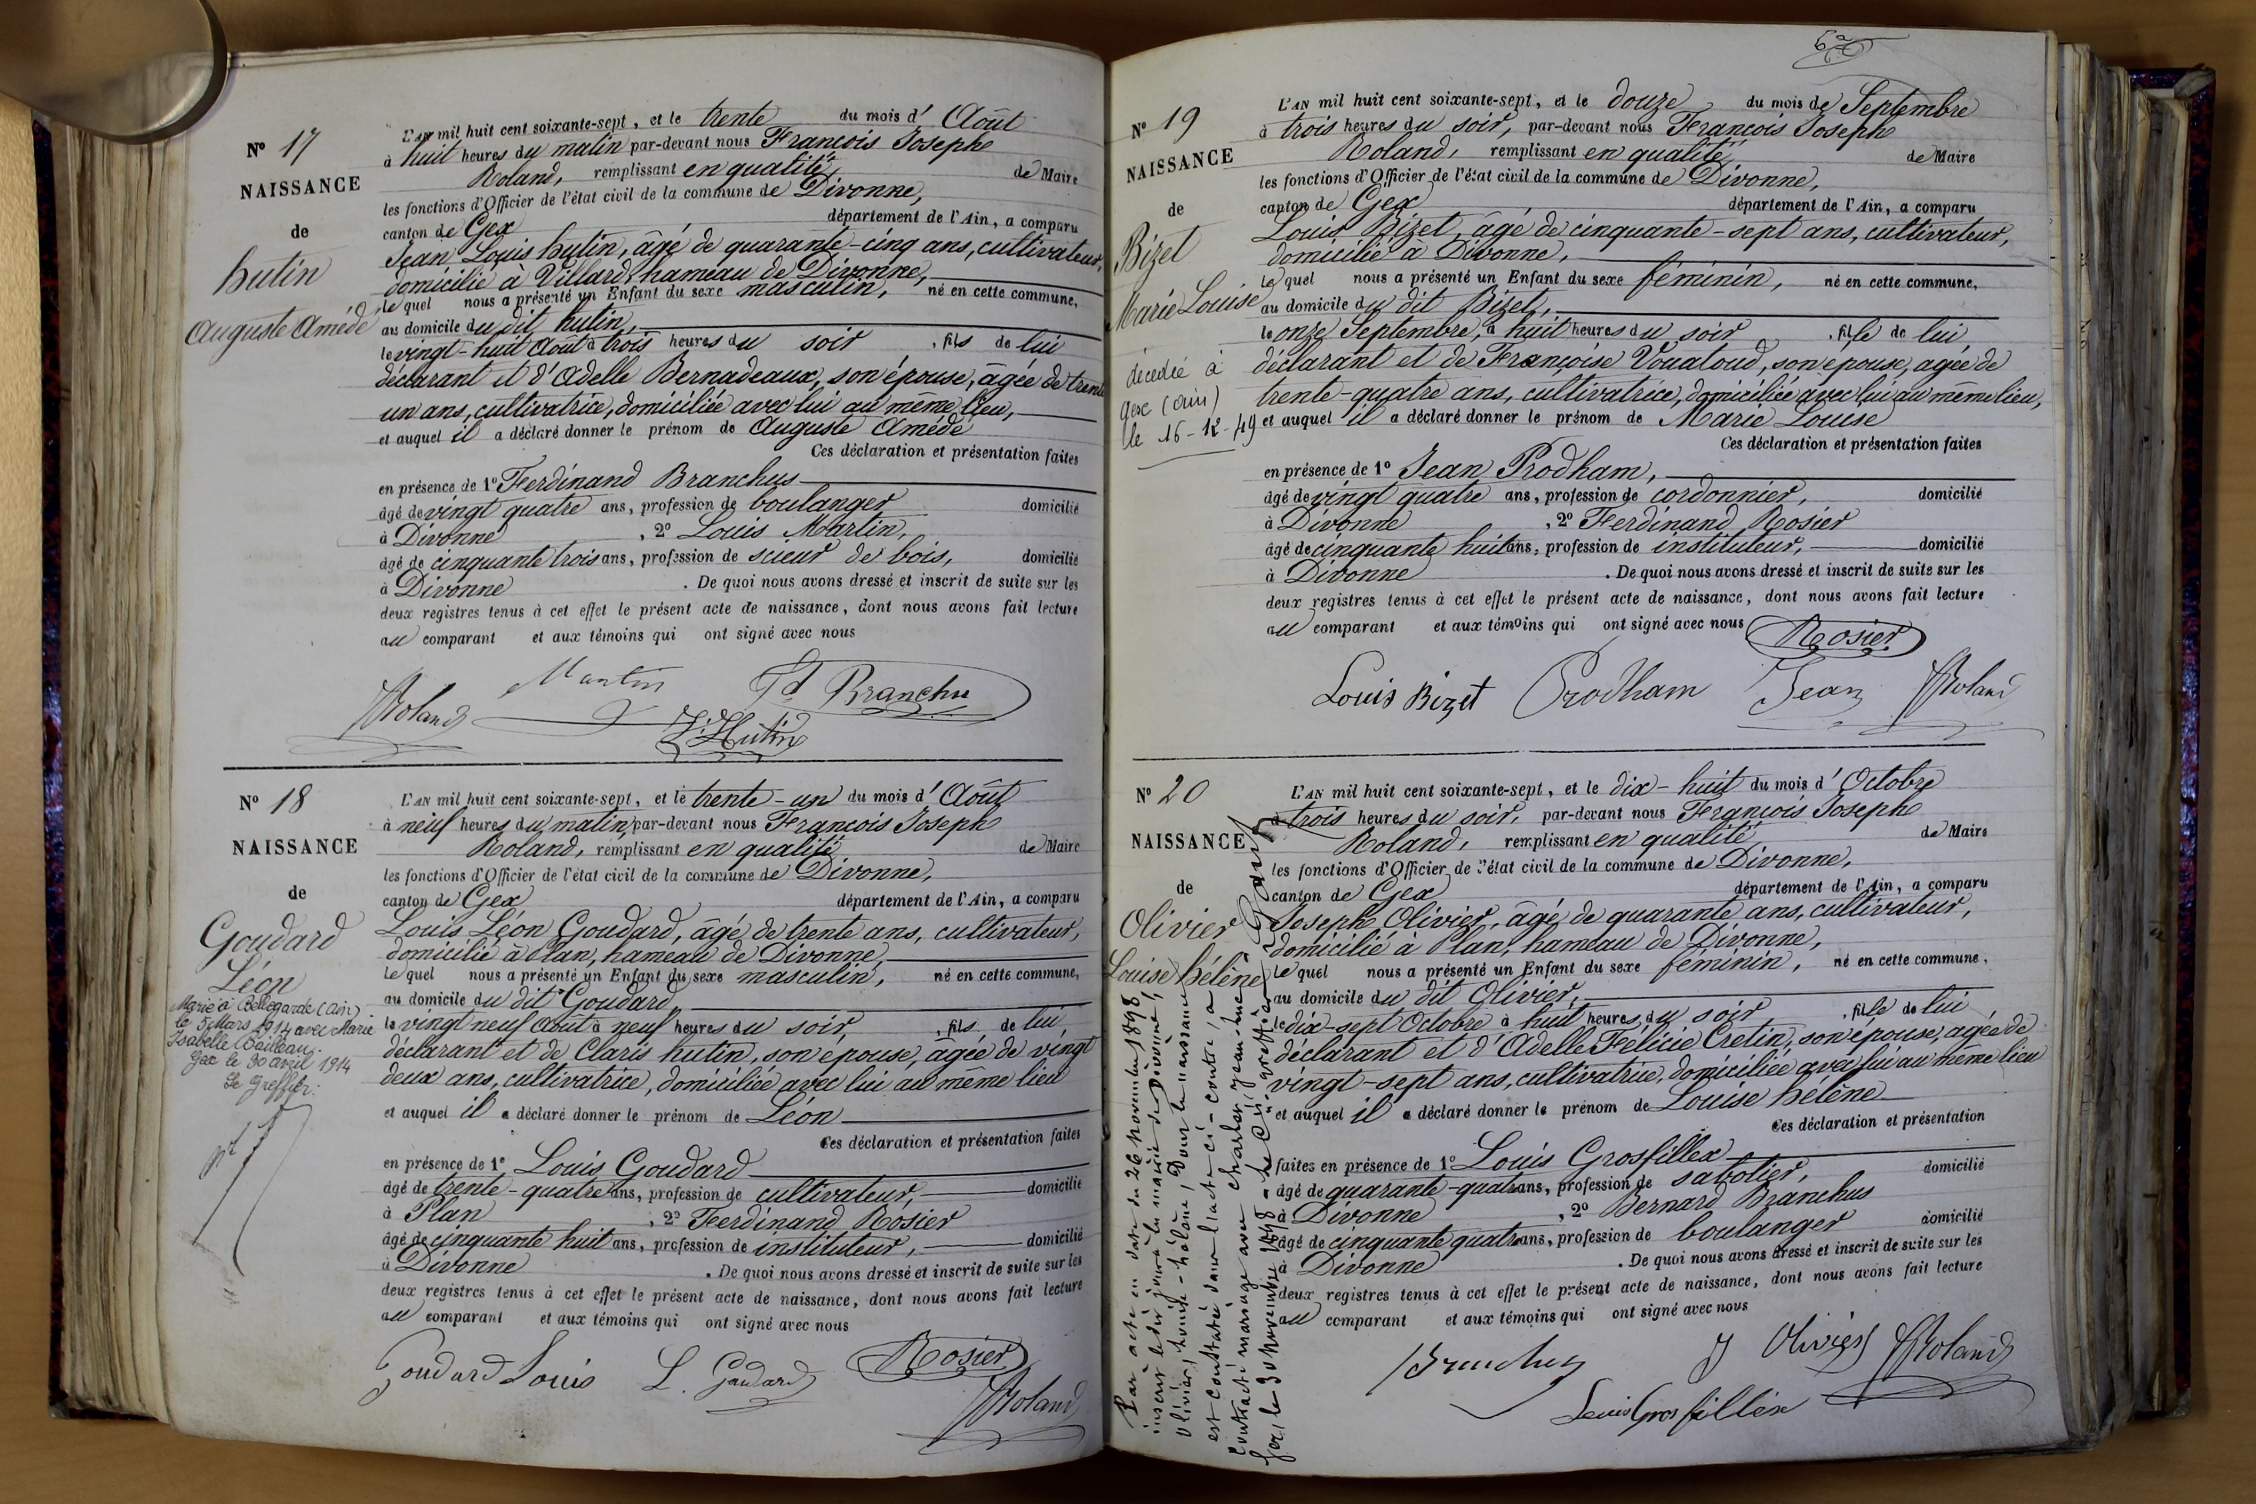 Nº 17
NAISSANCE
de
hutin
Auguste Amédé
L'AN mil huit cent soixante-sept, et le trente du mois d' Août
à huit heures du matin par-devant nous François Joseph
Roland, remplissant en qualité de Maire
les fonctions d'Officier de l'état civil de la commune de Divonne,
canton de Gex département de l'Ain, a comparu
Jean Louis hutin, âgé de quarante-cinq ans, cultivateur,
domicilié à Villard, hameau de Divonne,
Le quel nous a présenté un Enfant du sexe masculin, né en cette commune,
au domicile du dit hutin,
le vingt-huit Août à trois heures du soir, fils de lui
déclarant et d'Adelle Bernadeaux, son épouse, âgée de trente
un ans, cultivatrice, domiciliée avec lui au même lieu,
et auquel il a déclaré donner le prénom de Auguste Amédé
Ces déclaration et présentation faites
en présence de 1º Ferdinand Branchus
âgé de vingt quatre ans, profession de boulanger domicilié
à Divonne, 2º Louis Martin,
âgé de cinquante trois ans, profession de sueur de bois, domicilié
à Divonne. De quoi nous avons dressé et inscrit de suite sur les
deux registres tenus à cet effet le présent acte de naissance, dont nous avons fait lecture
au comparant et aux témoins qui ont signé avec nous
Roland Martin Fd Branchu
Hutin
Nº 18
NAISSANCE
de
Goudard
Léon
Marié à Bellegarde (Ain)
le 5 Mars 1914 avec Marie
Isabelle Bailleau.
Gex le 30 avril 1914
Le Greffier:
L'AN mil huit cent soixante-sept, et le trente-un du mois d' Août
à neuf heures du matin par-devant nous François Joseph
Roland, remplissant en qualité de Maire
les fonctions d'Officier de l'état civil de la commune de Divonne,
canton de Gex département de l'Ain, a comparu
Louis Léon Goudard, âgé de trente ans, cultivateur,
domicilié à Plan, hameau de Divonne,
Le quel nous a présenté un Enfant du sexe masculin, né en cette commune,
au domicile du dit Goudard,
le vingt neuf Août à neuf heures du soir, fils de lui,
déclarant et de Claris hutin, son épouse, âgée de vingt
deux ans, cultivatrice, domiciliée avec lui au même lieu
et auquel il a déclaré donner le prénom de Léon
Ces déclaration et présentation faites
en présence de 1º Louis Goudard
âgé de trente-quatre ans, profession de cultivateur, domicilié
à Plan, 2º Ferdinand Rosier
âgé de cinquante huit ans, profession de instituteur, domicilié
à Divonne. De quoi nous avons dressé et inscrit de suite sur les
deux registres tenus à cet effet le présent acte de naissance, dont nous avons fait lecture
au comparant et aux témoins qui ont signé avec nous
Goudard Louis L. Goudard Rosier
Roland
Nº 19
NAISSANCE
de
Bizet
Marie Louise
décedée à
Gex (Ain)
le 16-12-49
L'AN mil huit cent soixante-sept, et le douze du mois de Septembre
à trois heures du soir, par-devant nous François Joseph
Roland, remplissant en qualité de Maire
les fonctions d'Officier de l'état civil de la commune de Divonne,
canton de Gex département de l'Ain, a comparu
Louis Bizet, âgé de cinquante-sept ans, cultivateur,
domicilié à Divonne,
Le quel nous a présenté un Enfant du sexe féminin, né en cette commune,
au domicile du dit Bizet,
le onze Septembre, à huit heures du soir, fille de lui
déclarant et de Françoise Vouatoud, son épouse, agée de
trente-quatre ans, cultivatrice, domiciliée avec lui au même lieu,
et auquel il a déclaré donner le prénom de Marie Louise
Ces déclaration et présentation faites
en présence de 1º Jean Prodham,
âgé de vingt quatre ans, profession de cordonnier, domicilié
à Divonne, 2º Ferdinand Rosier
âgé de cinquante huit ans, profession de instituteur, domicilié
à Divonne. De quoi nous avons dressé et inscrit de suite sur les
deux registres tenus à cet effet le présent acte de naissance, dont nous avons fait lecture
au comparant et aux témoins qui ont signé avec nous Rosier
Louis Bizet Prodham Jean Roland
Nº 20
NAISSANCE
de
Olivier
Louise hélène
L'AN mil huit cent soixante-sept, et le dix-huit du mois d' Octobre
à trois heures du soir, par-devant nous François Joseph
Roland, remplissant en qualité de Maire
les fonctions d'Officier de l'état civil de la commune de Divonne,
canton de Gex département de l'Ain, a comparu
Joseph Olivier, âgé de quarante ans, cultivateur,
domicilié à Plan, hameau de Divonne,
Le quel nous a présenté un Enfant du sexe féminin, né en cette commune,
au domicile du dit Olivier,
le dix-sept Octobre à huit heures du soir, fille de lui
déclarant et d'Adelle Félicie Cretin, son épouse, agée de
vingt-sept ans, cultivatrice, domiciliée avec lui au même lieu
et auquel il a déclaré donner le prénom de Louise hélène
Ces déclaration et présentation
faites en présence de 1º Louis Grosfillex domicilié
âgé de quarante-quatre ans, profession de sabotier,
à Divonne, 2º Bernard Branchus
âgé de cinquante quatre ans, profession de boulanger domicilié
à Divonne. De quoi nous avons dressé et inscrit de suite sur les
deux registres tenus à cet effet le présent acte de naissance, dont nous avons fait lecture
au comparant et aux témoins qui ont signé avec nous
Branchus J Olivier Roland
Louis Grosfillex
Par acte en date du 26 novembre 1898,
inscrit le dit jour à la mairie de Divonne,
Olivier, Louise-hélène, dont la naissance
est constatée dans l'acte ci-contre, a
contracté mariage avec Charles, Jean-Luc
Gex, le 30 novembre 1898 - le greffier